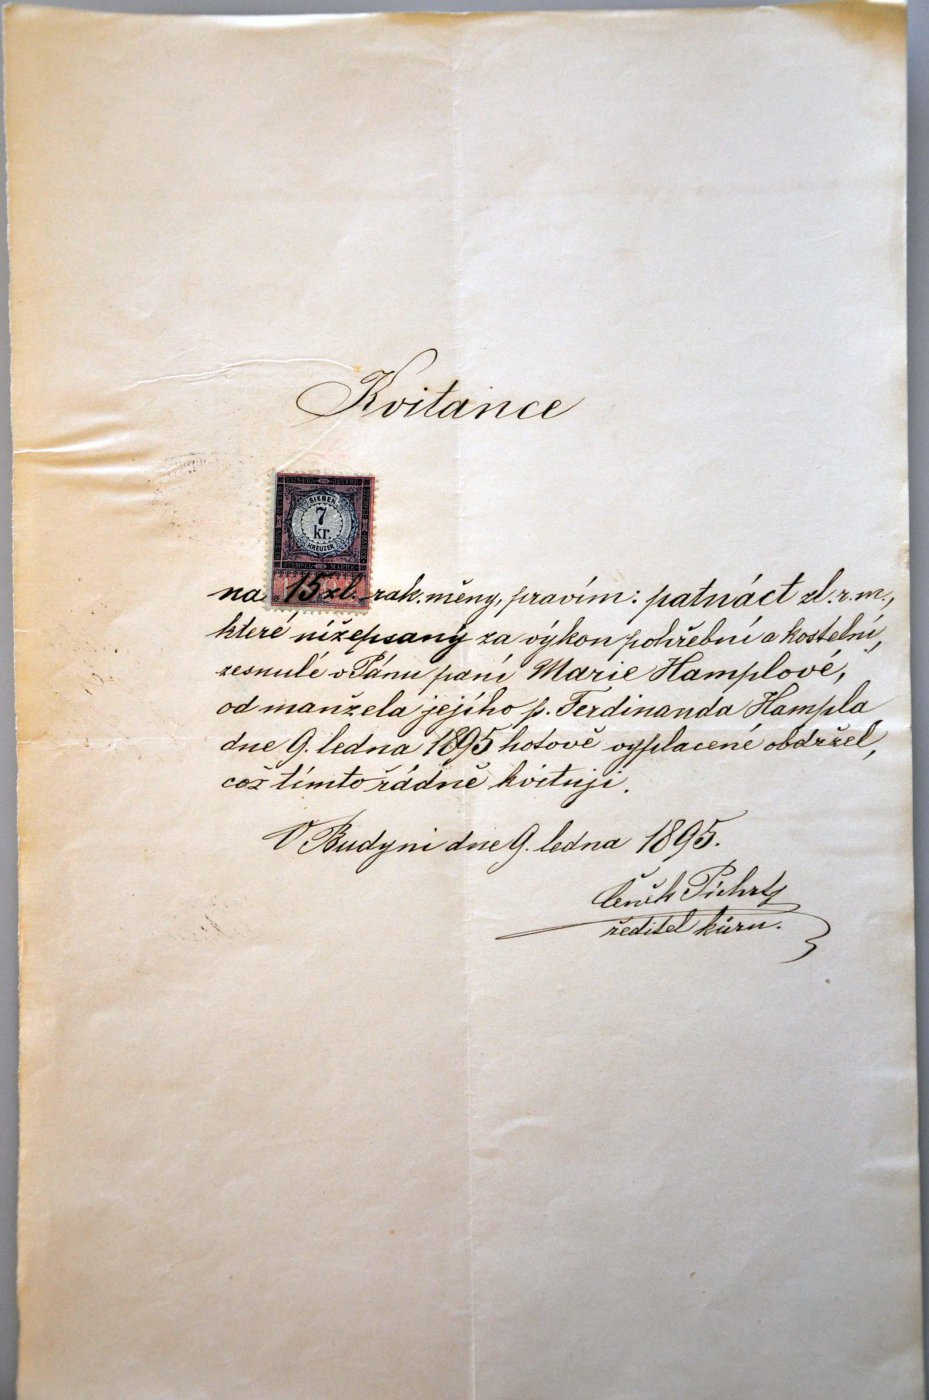 Kvitance
SIEBEN
7
kr.
KREUZER
STEMPEL MARKE
na 15 zl. rak. měny, pravím: patnáct zl. r. m.,
které nížepsaný za výkon pohřební a kostelní,
zesnulé v Pánu paní Marie Hamplové,
od manžela jejího p. Ferdinanda Hampla
dne 9. ledna 1895 hotově vyplacené obdržel,
což tímto řádně kvituji.
V Budyni dne 9. ledna 1895.
Čeněk Píchrty
ředitel kůru.